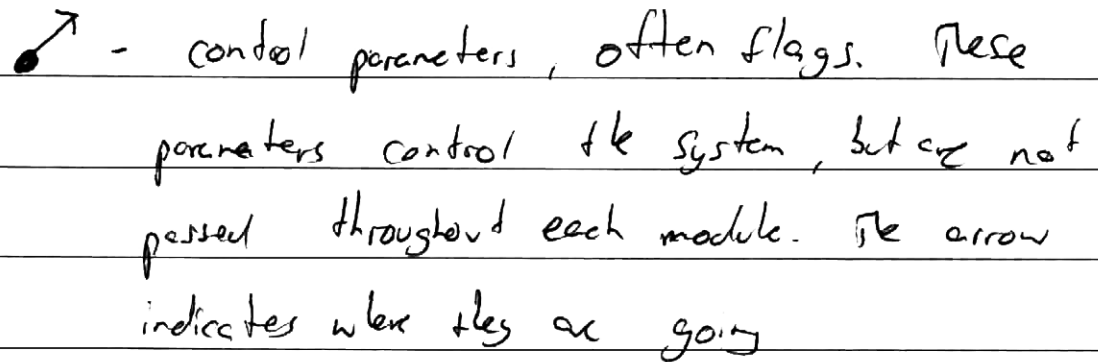 - control parameters, often flags. These
parameters control the system, but are not
passed throughout each module. The arrow
indicates where they are going